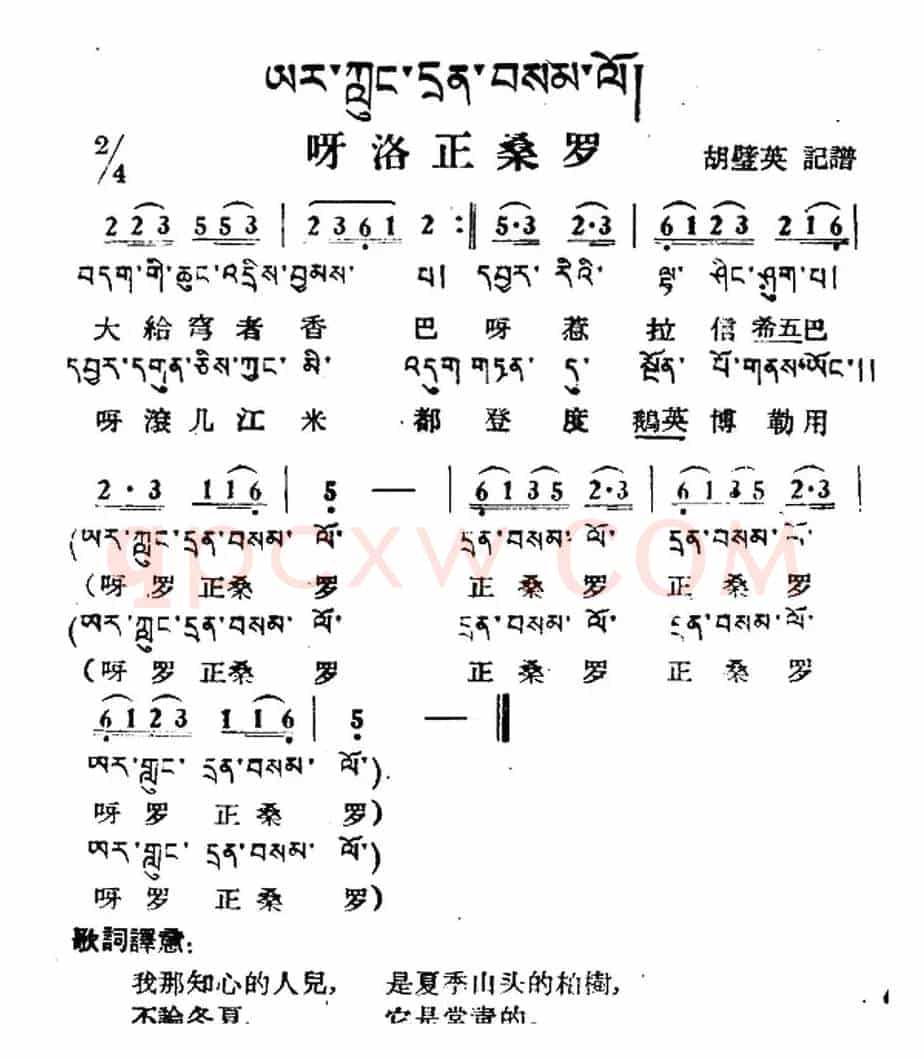 ཨར་ཀླུང་དྲན་བསམ་ལོ།
2/4 呀洛正桑罗 胡璧英 記譜
2 2 3 5 5 3 | 2 3 6 1 2 :‖ 5·3 2·3 | 6 1 2 3 2 1 6 |
བདག་གི་ཆུང་འདྲིས་བྱམས་ པ། དབྱར་ རིའི་ ལྟ་ ཤིང་ཤུག་པ།
大給穹者香 巴呀惹 拉信希五巴
དབྱར་དགུན་ཅིས་ཀྱང་མི་ འདུག གཏན་ དུ་ སྔོན་ པོ་གནས་ཡོང་།།
呀滾几江米 都登度 鵝英博勒用
2 · 3 1 1 6 | 5 — | 6 1 3 5 2·3 | 6 1 3 5 2·3 |
(ཨར་ཀླུང་དྲན་བསམ་ ལོ་ དྲན་བསམ་ ལོ་ དྲན་བསམ་ ལོ་
(呀罗正桑 罗 正桑罗 正桑罗
(ཨར་ཀླུང་དྲན་བསམ་ ལོ་ དྲན་བསམ་ ལོ་ དྲན་བསམ་ ལོ་
(呀罗正桑 罗 正桑罗 正桑罗
6 1 2 3 1 1 6 | 5 — ‖
ཨར་ཀླུང་ དྲན་བསམ་ ལོ་)
呀罗 正桑 罗)
ཨར་ཀླུང་ དྲན་བསམ་ ལོ་)
呀罗 正桑 罗)
歌詞譯意:
我那知心的人兒, 是夏季山头的柏樹,
不論冬夏, 它是常青的。
qpcxw.COM